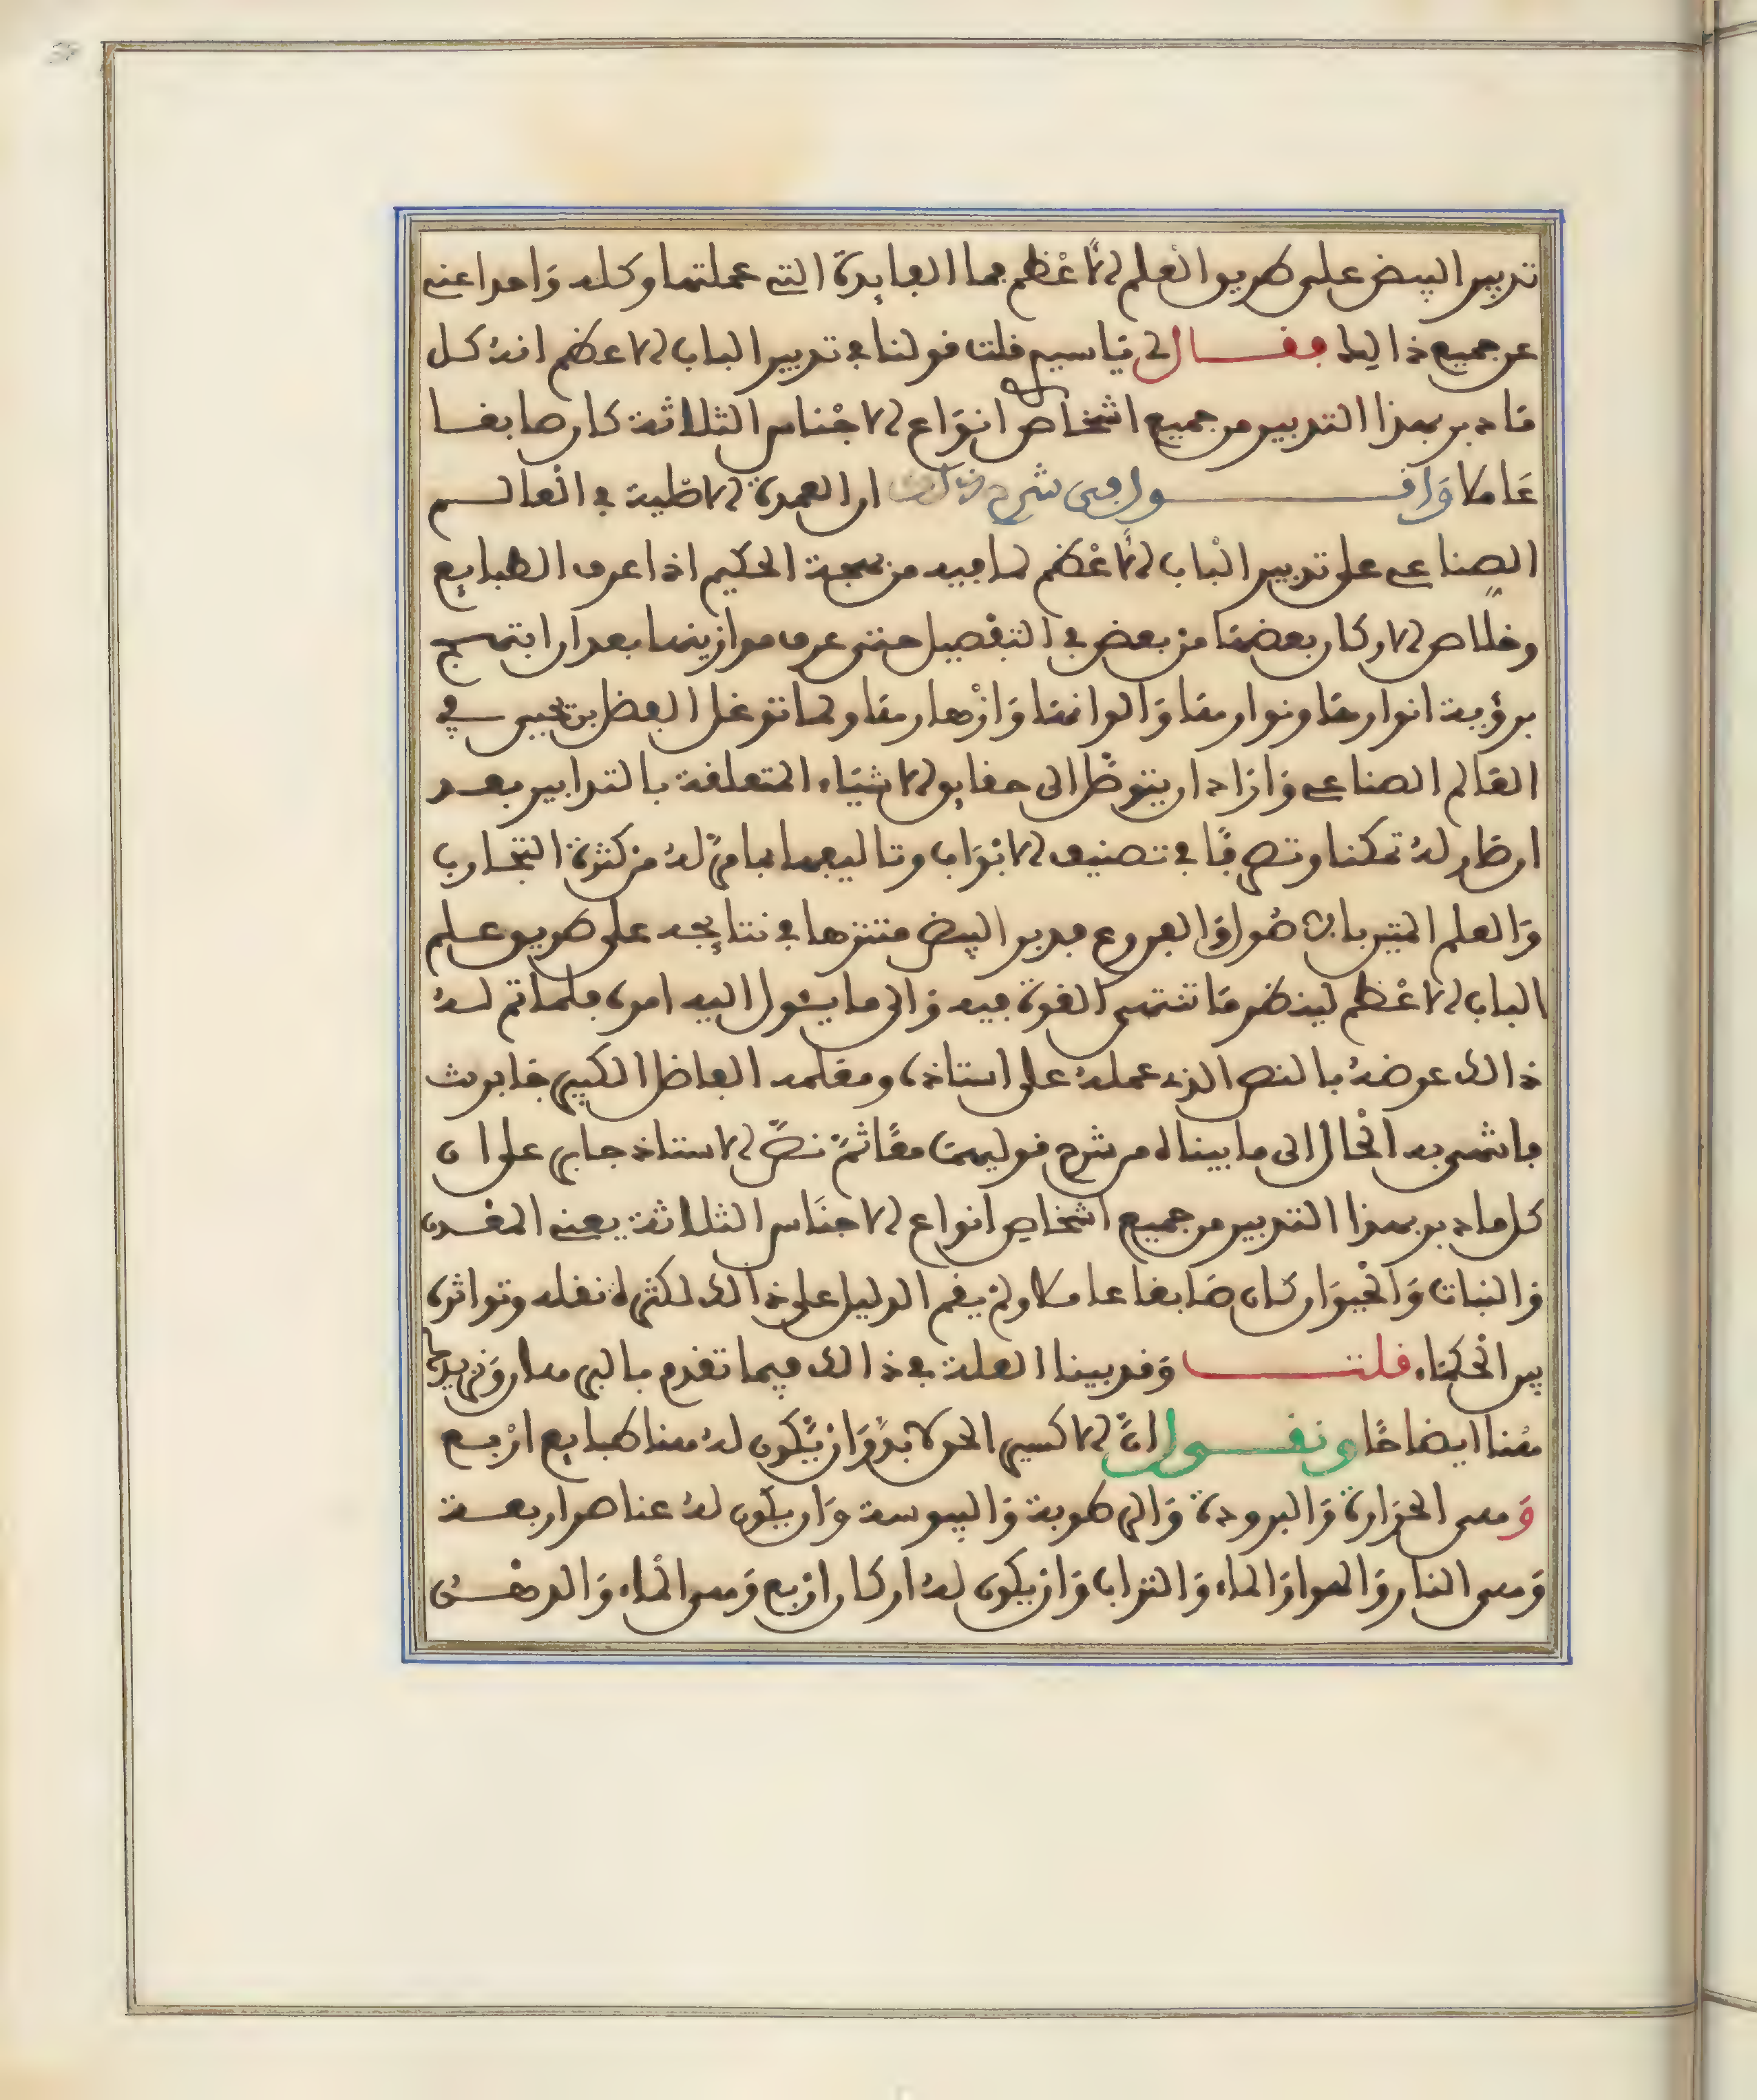 تدبير البيض على طريق العلم الأعظم بما الفايدة التي عملتها وكله واحدا عني
عن جميع ذالك فقال لي ياسيم قلت قولنا في تدبير الباب الاعظم انه كل
ما دبر بهذا التدبير من جميع اشخاص انواع الاجناس الثلاثة كان صابغا
عاملا واقول في شرح ذلك ان العمدة الاصلية في العالم
الصناعي على تدبير الباب الأعظم لما فيه من بهجة الحكيم اذا عرف الطبايع
وخلاص الاركان بعضها من بعض في التفصيل حتى عرف موازينها بعد ان ابتهج
برؤية انوارها ونوارها والوانها وازهارها ولما توغل الفضل بن يحيى في
العالم الصناعي واراد ان يتوصل الى حقايق الاشياء المتعلقة بالتدابير بعد
ان صار له تمكنا وتصرفا في تصنيف الابواب وتاليفها لما مر له من كثرة التجارب
والعلم المتين باصول والفروع فدبر البيض متنزها في نتايجه على طريق علم
الباب الاعظم لينظر ما تنتهي القوة فيه والى ما يئول اليه امره فلما تم له
ذالك عرضه بالنص الذي عمله على استاذه ومعلمه الفاضل الكبير جابر ث
فانتهى به الحال الى ما بيناه من شرح قوليهما معا ثم نص الاستاذ جابر على ان
كل ما دبر بهذا التدبير من جميع اشخاص انواع الاجناس الثلاثة يعني المعدن
والنبات والحيوان كان صابغا عاملا ولم يقم الدليل على ذالك لكثرة نقله وتواتره
بين الحكماء قلت وقد بينا العلة في ذالك فيما تقدم بالبرهان ونزيدها
هنا ايضاحا ونقول ان الاكسير الحق لا بد وان يكون له هنا طبايع اربع
وهي الحرارة والبرودة والرطوبة واليبوسة وان يكون له عناصر اربعة
وهي النار والهوا والماء والتراب وان يكون له اركان اربع وهي الماء والدهن